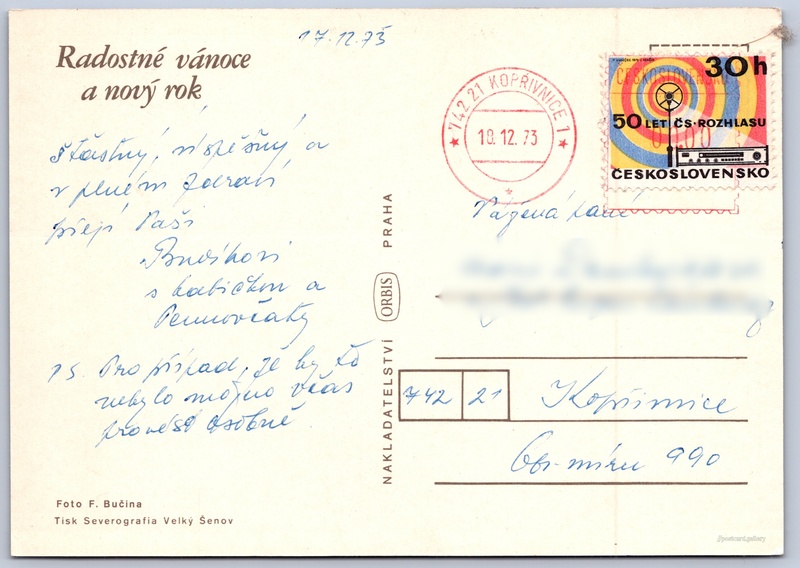 17.12.73
Radostné vánoce
a nový rok
Šťastný, úspěšný a
v plném zdraví
přejí Vaši
Budíkovi
s babičkou a
PS. Pro případ, že by to
nebylo možno včas
provést osobně.
Foto F. Bučina
Tisk Severografia Velký Šenov
NAKLADATELSTVÍ ORBIS PRAHA
742 21 KOPŘIVNICE 1
18.12.73
30h
50 LET ČS. ROZHLASU
ČESKOSLOVENSKO
Vážená paní
742 21 Kopřivnice
Obr. míru 990
postcard.gallery